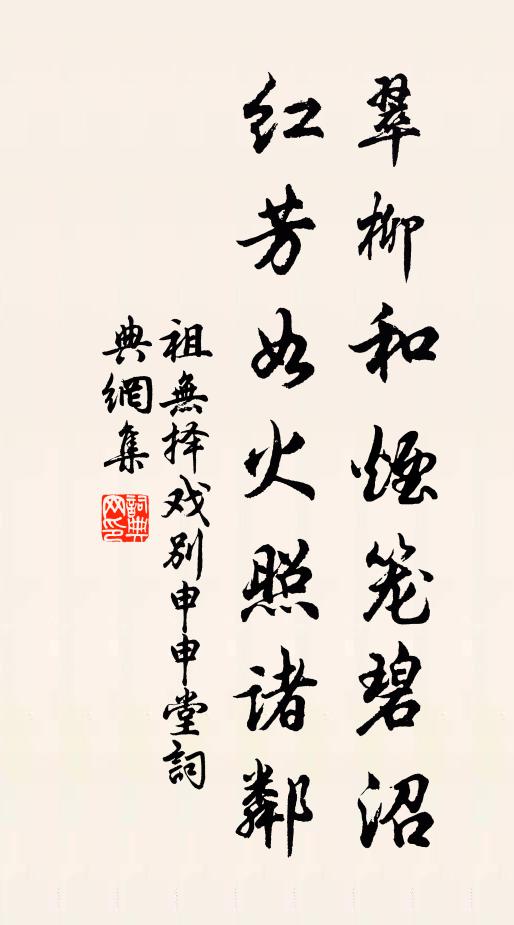 翠柳和煙笼碧沼
紅芳如火照诸鄰
祖無择戏别申申堂詞
典網集
詞典
网印